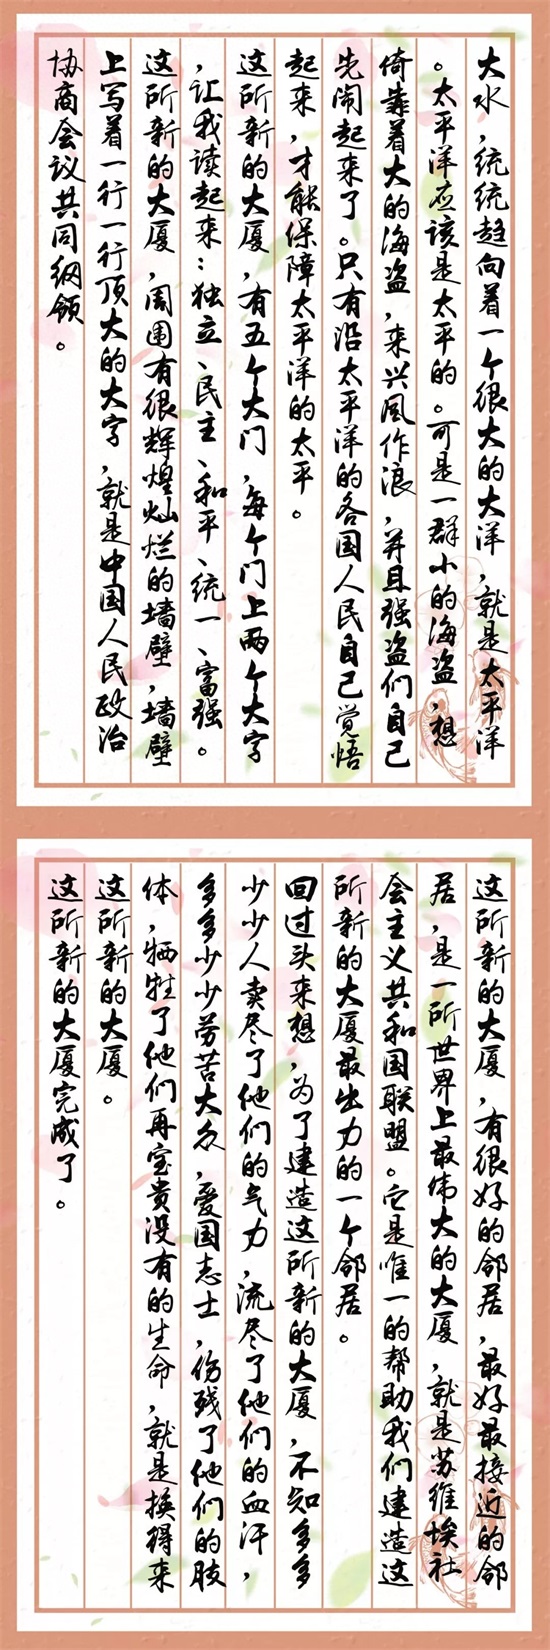 大水，统统趋向着一个很大的大洋，就是太平洋
。太平洋应该是太平的。可是一群小的海盗，想
倚靠着大的海盗，来兴风作浪，并且强盗们自己
先闹起来了。只有沿太平洋的各国人民自己觉悟
起来，才能保障太平洋的太平。
这所新的大厦，有五个大门，每个门上两个大字
，让我读起来：独立、民主、和平、统一、富强。
这所新的大厦，周围有很辉煌灿烂的墙壁，墙壁
上写着一行一行顶大的大字，就是中国人民政治
协商会议共同纲领。
这所新的大厦，有很好的邻居，最好最接近的邻
居，是一所世界上最伟大的大厦，就是苏维埃社
会主义共和国联盟。它是唯一的帮助我们建造这
所新的大厦最出力的一个邻居。
回过头来想，为了建造这所新的大厦，不知多多
少少人卖尽了他们的气力，流尽了他们的血汗，
多多少少劳苦大众，爱国志士，伤残了他们的肢
体，牺牲了他们再宝贵没有的生命，就是换得来
这所新的大厦。
这所新的大厦完成了。